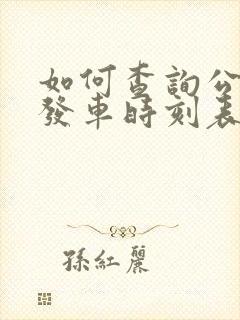 如何查詢公
發車時刻表
孫紅麗